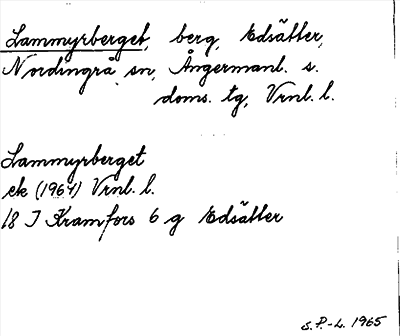 Lammyrberget, berg, Edsätter,
Nordingrå sn, Ångermanl. s.
doms. tg, Vrnl. l.
Lammyrberget
ek (1964) Vrnl. l.
18 J Kramfors 6 g Edsätter
S. P.-L. 1965